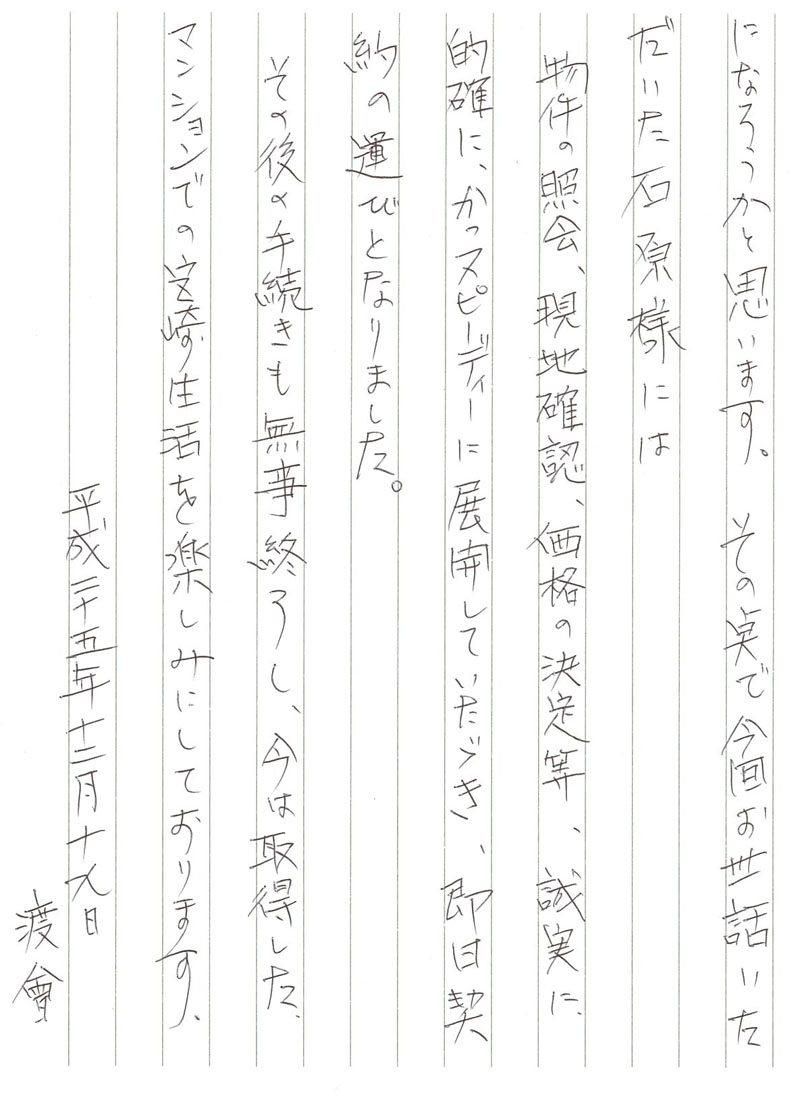 になろうかと思います。その点で今回お世話いた
だいた石原様には
物件の照会、現地確認、価格の決定等、誠実に
的確に、かつスピーディーに展開していたゞき、即日契
約の運びとなりました。
その後の手続きも無事終了し、今は取得した
マンションでの宮崎生活を楽しみにしております、
平成二十五年十二月十九日
渡會